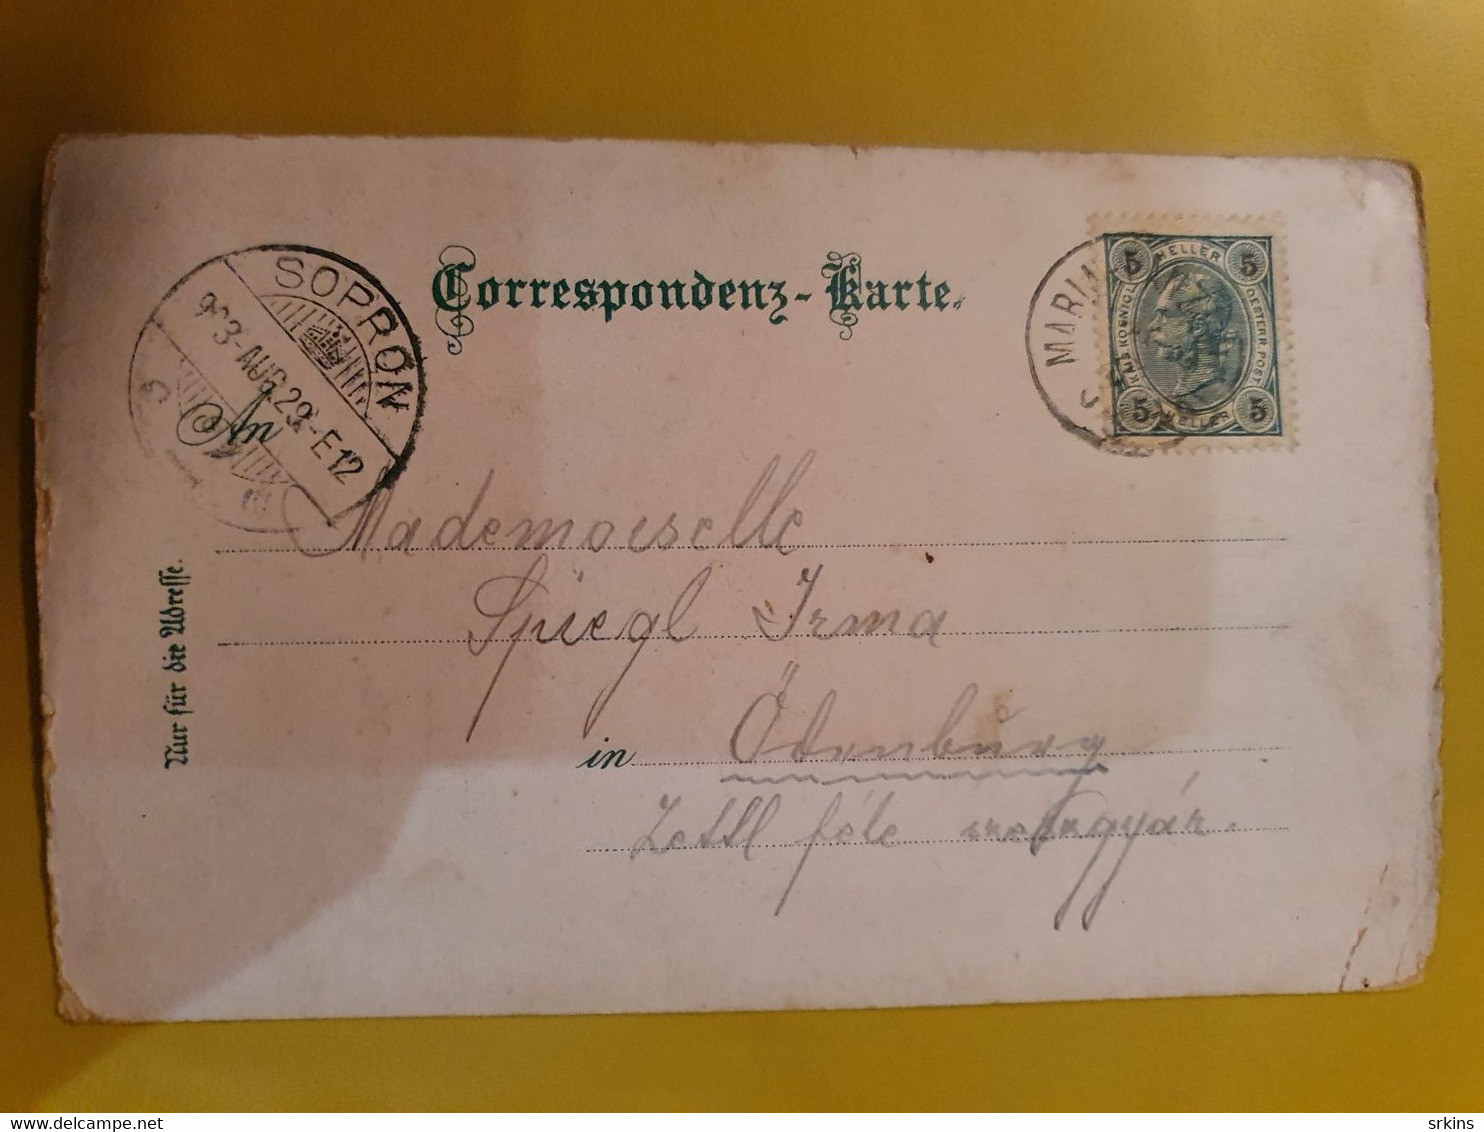 Correspondenz-Karte.
SOPRON
903-AUG.29.-E12
MARIA
5 HELLER 5
KAIS. KOENIGL. OESTERR. POST
5 HELLER 5
An
Mademoiselle
Spiegl Irma
in Ödenburg
Zettl féle
Nur für die Adresse.
srkins